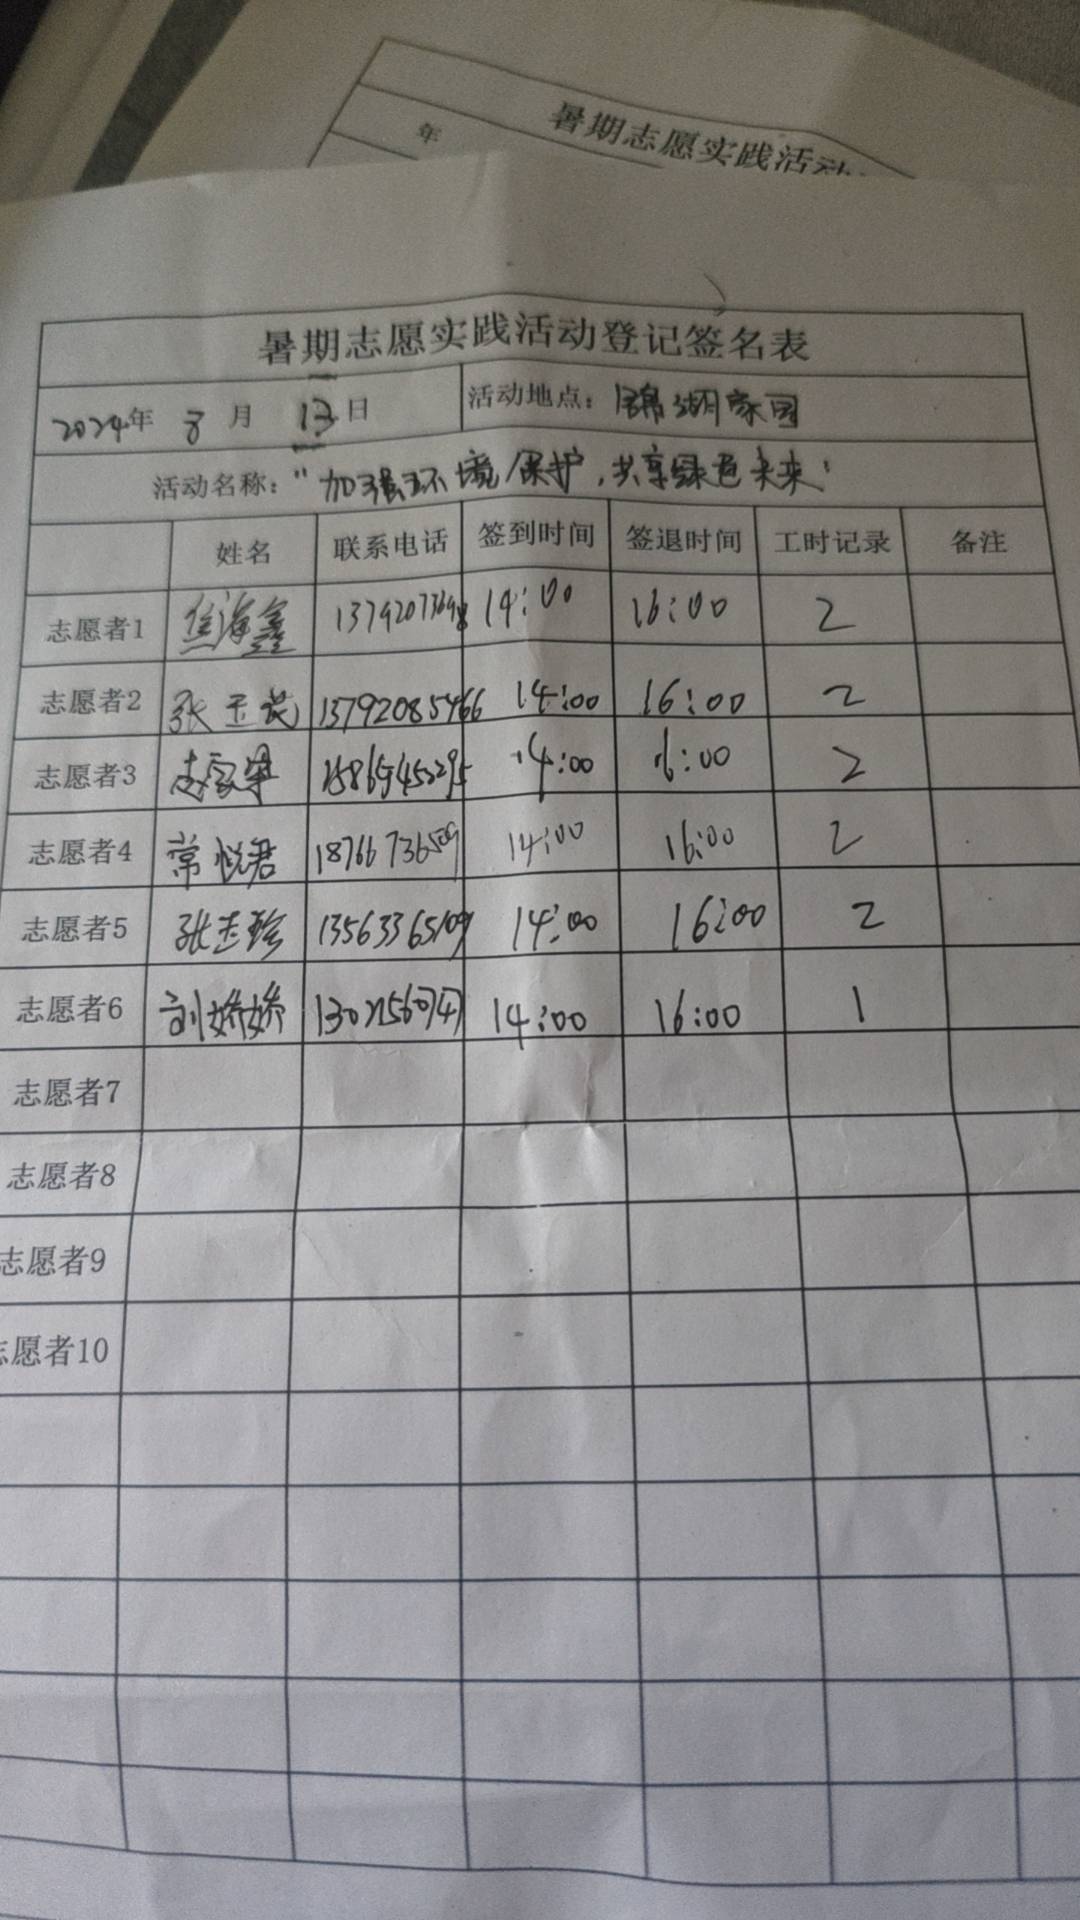 暑期志愿实践活动
年
暑期志愿实践活动登记签名表
2024年 8月 13日 活动地点：锦湖家园
活动名称："加强环境保护，共享绿色未来！
姓名 联系电话 签到时间 签退时间 工时记录 备注
志愿者1 焦海鑫 14:00 16:00 2
志愿者2 张玉芪 13792085466 14:00 16:00 2
志愿者3 14:00 16:00 2
志愿者4 常悦君 18766736509 14:00 16:00 2
志愿者5 张志珍 13563365109 14:00 16:00 2
志愿者6 刘娇娇 14:00 16:00 1
志愿者7
志愿者8
志愿者9
志愿者10